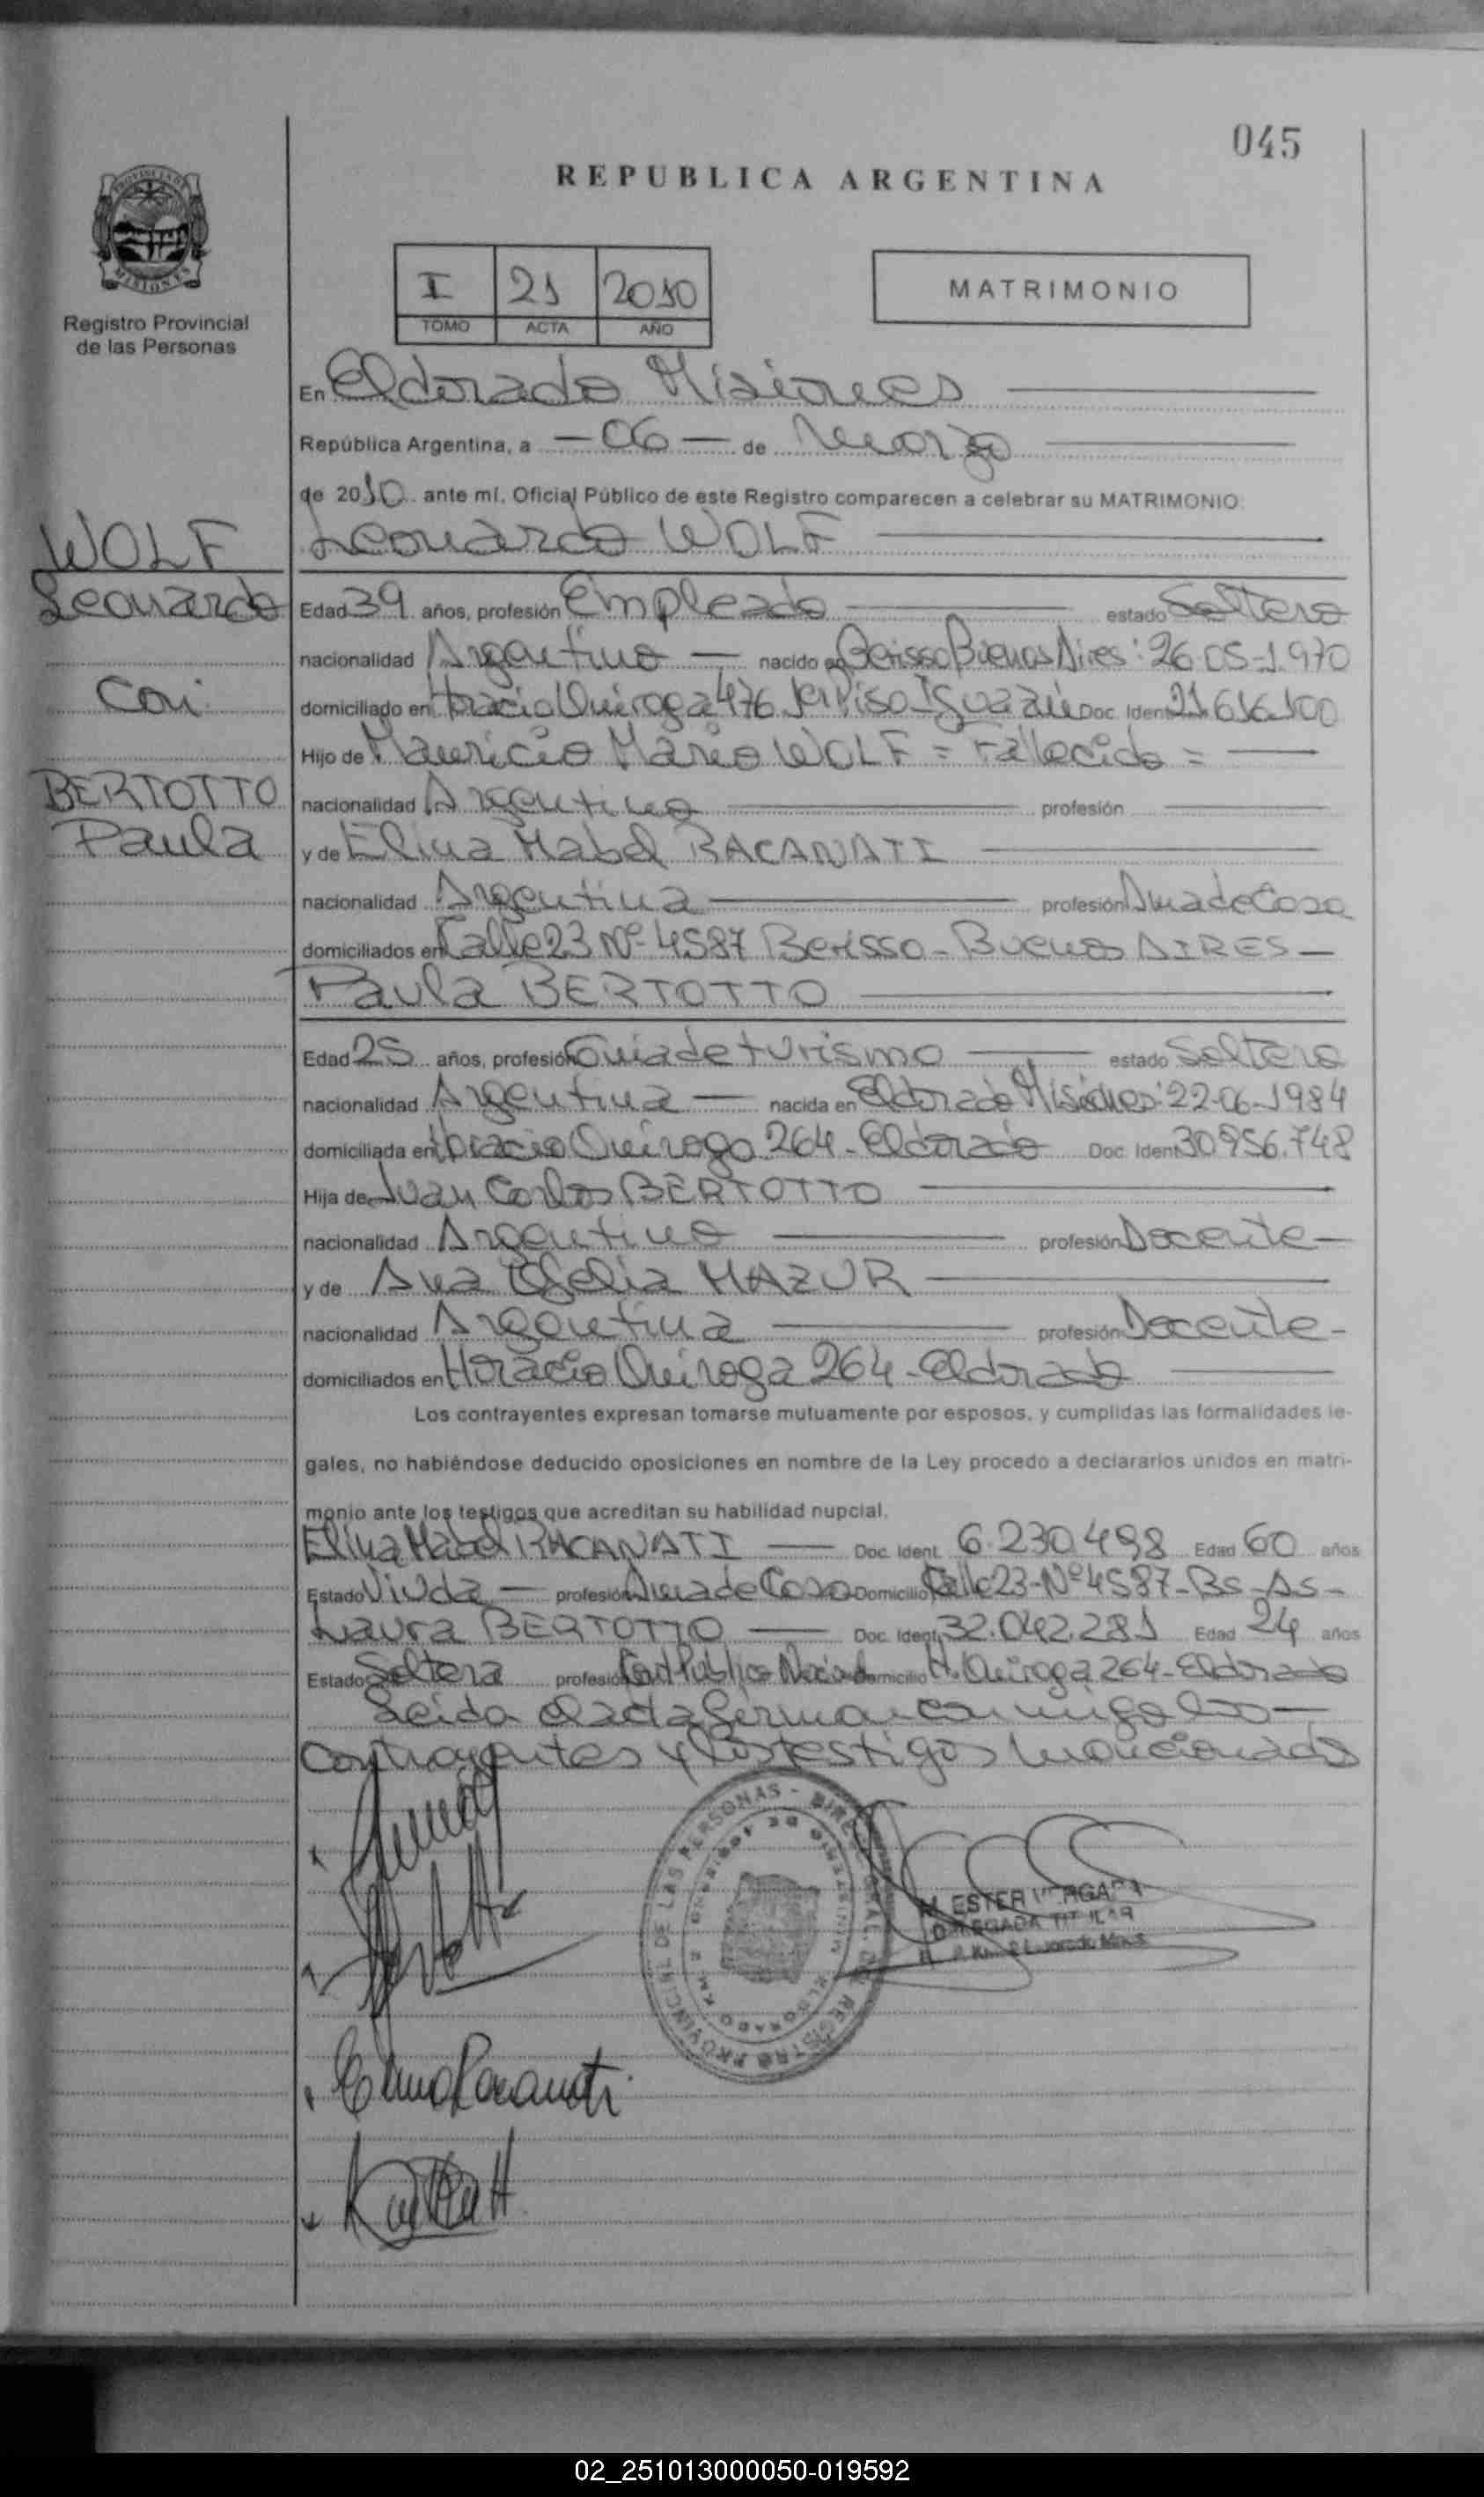 045
REPUBLICA ARGENTINA
PROVINCIA DE
MISIONES
Registro Provincial
de las Personas
I 21 2010
TOMO ACTA AÑO
MATRIMONIO
En Eldorado Misiones
República Argentina, a — 06 — de Marzo
de 2010 ante mí, Oficial Público de este Registro comparecen a celebrar su MATRIMONIO:
WOLF
Leonardo
Con
BERTOTTO
Paula
Leonardo WOLF
Edad 39 años, profesión Empleado estado Soltero
nacionalidad Argentino — nacido en Berisso Buenos Aires: 26-05-1970
domiciliado en Horacio Quiroga 476 1er Piso Iguazú Doc. Ident. 21.616.100
Hijo de Mauricio Mario WOLF = Fallecido =
nacionalidad Argentino profesión
y de Elina Mabel RACANATI
nacionalidad Argentina profesión Ama de Casa
domiciliados en Calle 23 Nº 4587 Berisso - Buenos AIRES —
Paula BERTOTTO
Edad 25 años, profesión Guia de turismo estado Soltera
nacionalidad Argentina — nacida en Eldorado Misiones: 22-06-1984
domiciliada en Horacio Quiroga 264 - Eldorado Doc. Ident. 30.956.748
Hija de Juan Carlos BERTOTTO
nacionalidad Argentino profesión Docente —
y de Ana Ofelia MAZUR
nacionalidad Argentina profesión Docente -
domiciliados en Horacio Quiroga 264 - Eldorado
Los contrayentes expresan tomarse mutuamente por esposos, y cumplidas las formalidades le-
gales, no habiéndose deducido oposiciones en nombre de la Ley procedo a declararlos unidos en matri-
monio ante los testigos que acreditan su habilidad nupcial.
Elina Mabel RACANATI — Doc. Ident. 6.230.498 Edad 60 años
Estado Viuda — profesión Ama de Casa Domicilio Calle 23 - Nº 4587 - Bs - As -
Laura BERTOTTO — Doc. Ident. 32.042.281 Edad 24 años
Estado Soltera profesión Cont. Público Nacional Domicilio H. Quiroga 264 - Eldorado
Leida el acta firman conmigo los —
contrayentes y los testigos mencionados
REGISTRO PROVINCIAL DE LAS PERSONAS -
ELDORADO KM. 2
M. ESTER VERGARA
DELEGADA TITULAR
Elina Racanati
02_251013000050-019592